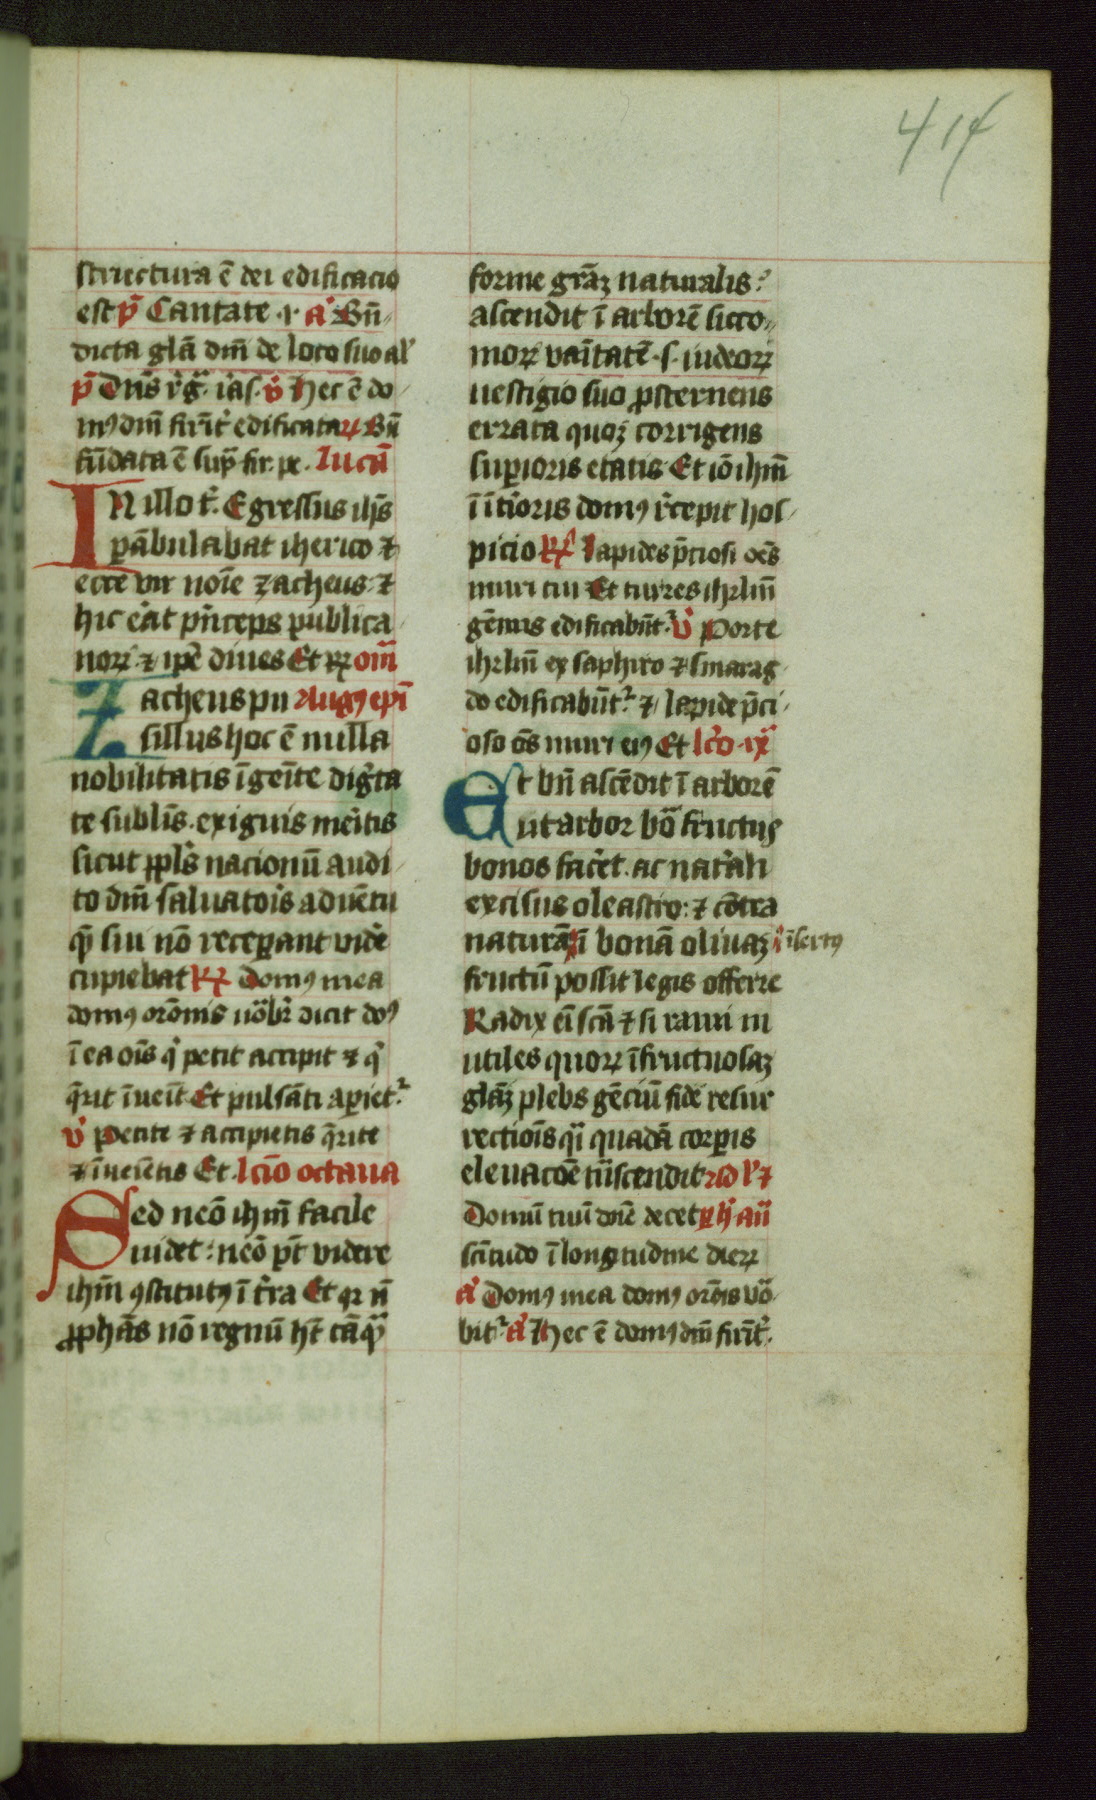 414
structura ē dei edificacio
est p̄ Cantate ·r· a᷎ Bn̄
dicta gl̄a dn̄i de loco suo al᷎
p̄ Dn̄s r̄g̃. ias. v᷎ Hec ē do
mꝰ dn̄i firīt᷎ edificata ꝶ Bn̄
fūdata ē sup̄ fir. pe. lucā
IN illo t᷎. Egressus ih̄s
p̄ābulabat iherico ⁊
ecce vir noīe zacheus ⁊
hic e᷎at p̄nceps publica
norꝝ ⁊ ip̄e diues Et rꝝ om̄
Zacheus pu Augꝰ ep̄i
sillus hoc ē nulla
nobilitatis īgeīte dig̃ta
te sublīs. exiguis me᷎itis
sicut pp̄ls nacionū audi
to dn̄i saluato᷎is aduētu
q̄ siu nō recep̱ant vid᷎e
cupiebat ꝶ Domꝰ mea
domꝰ orōnis uōbr̄ dicit dōs
ī ea oīs q᷎ petit accipit ⁊ q᷎
q̄rit īueīt Et pulsāti ap̱iet᷎
v᷎ Petite ⁊ accipietis q̄rite
⁊ īueīetis Et lc̄io octaua
Sed neō ih̄m facile
uidet: neō pt̄ videre
ih̄m ꝯstitutꝰ ī t᷎ra Et qꝛ n̄
pp̄hās nō regnū hȳ tā q̃
forme gr̄aꝫ naturalis᷎
ascendit ī arborē sicco
morꝝ vaītatē .s. iudeorꝝ
uestigio suo ꝓsternens
errata quoꝫ corrigens
sup̱ioris etatis Et iō ih̄m
ī īt᷎ioris domꝰ r᷎cepit hos
picio ꝶ lapides p̄ciosi oēs
muri tui Et turres ihrlm̄
gēmis edificabūt᷎ v᷎ Porte
ihrlm̄ ex saphiro ⁊ smarag
do edificabūt᷎ ⁊ lapide p̄ci
oso ōs muri eiꝰ Et lc̄o ix᷎
Et bn̄ ascēdit ī arborē
ut arbor bōa fructus
bonos fac᷎et. ac nat᷎ali
excisus oleastro: ⁊ cōtra
naturā ī bonā oliuaꝫ īsertꝰ
fructū possit legis offerre
Radix eī scā ⁊ si rami in
utiles quorꝝ īfructuosaꝫ
gl̄aꝫ plebs gēciū fide resur
rectiōis q̄i quadā corp̱is
eleuacōe trāscendit ad l᷎ ⁊
Domū tuū dn̄e decet p̱ h᷎ an̄
sc̄itudo ī longitudine dierꝝ
a᷎ Domꝰ mea domꝰ orōis vō
bit᷎ a᷎ Hec ē domꝰ dn̄i firīt᷎.